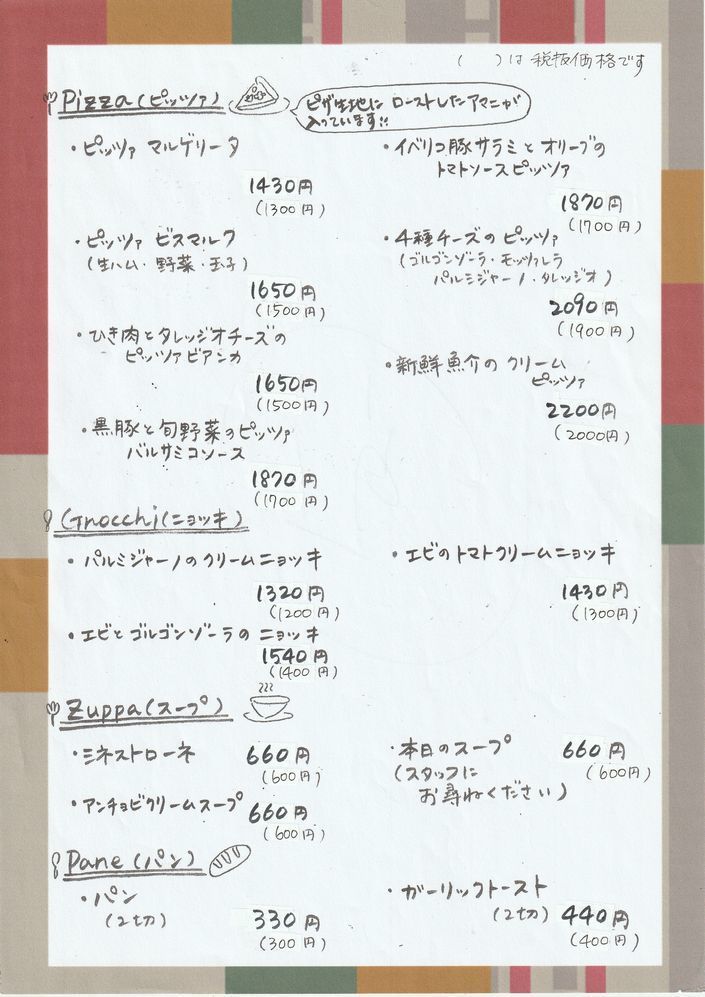 （　）は税抜価格です
Pizza(ピッツァ)
ピザ生地に ローストしたアマニが
入っています!!
・ピッツァ マルゲリータ
1430円
(1300円)
・ピッツァ ビスマルク
(生ハム・野菜・玉子)
1650円
(1500円)
・ひき肉とタレッジオチーズの
ピッツァビアンカ
1650円
(1500円)
・黒豚と旬野菜のピッツァ
バルサミコソース
1870円
(1700円)
・イベリコ豚サラミとオリーブの
トマトソースピッツァ
1870円
(1700円)
・4種チーズのピッツァ
(ゴルゴンゾーラ・モッツァレラ
パルミジャーノ・タレッジオ)
2090円
(1900円)
・新鮮魚介のクリーム
ピッツァ
2200円
(2000円)
Gnocchi(ニョッキ)
・パルミジャーノのクリームニョッキ
1320円
(1200円)
・エビとゴルゴンゾーラのニョッキ
1540円
(1400円)
・エビのトマトクリームニョッキ
1430円
(1300円)
Zuppa(スープ)
・ミネストローネ 660円
(600円)
・アンチョビクリームスープ 660円
(600円)
・本日のスープ 660円
(スタッフに (600円)
お尋ねください)
Pane(パン)
・パン
(2切) 330円
(300円)
・ガーリックトースト
(2切) 440円
(400円)